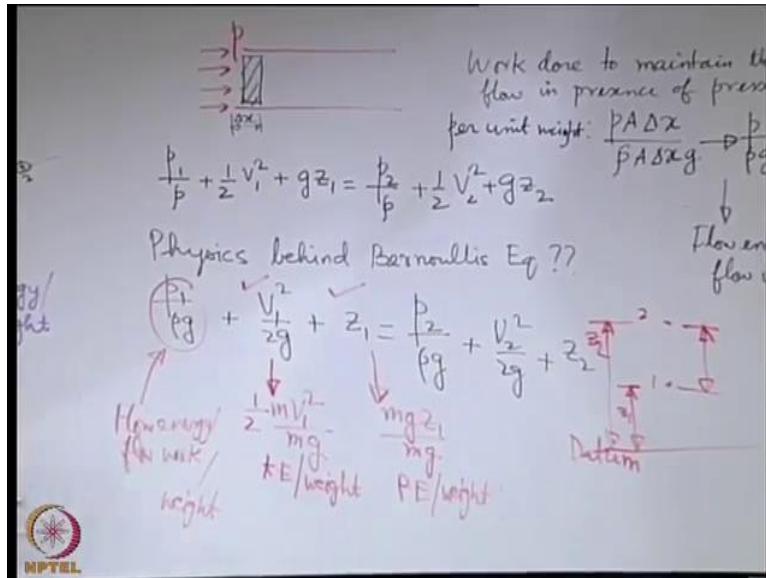 p
Δx
Work done to maintain th
flow in presence of pres
per unit weight: pAΔx / ρAΔxg → p / ρg
p₁/ρ + 1/2 V₁² + gz₁ = p₂/ρ + 1/2 V₂² + gz₂
Flow en
flow
Physics behind Bernoullis Eq ??
gy/
ght
p₁/ρg + V₁²/2g + z₁ = p₂/ρg + V₂²/2g + z₂
Flow energy/
flow work/
weight
1/2 mV₁² / mg
KE/weight
mgz₁ / mg
PE/weight
2
z₂
1
z₁
Datum
NPTEL